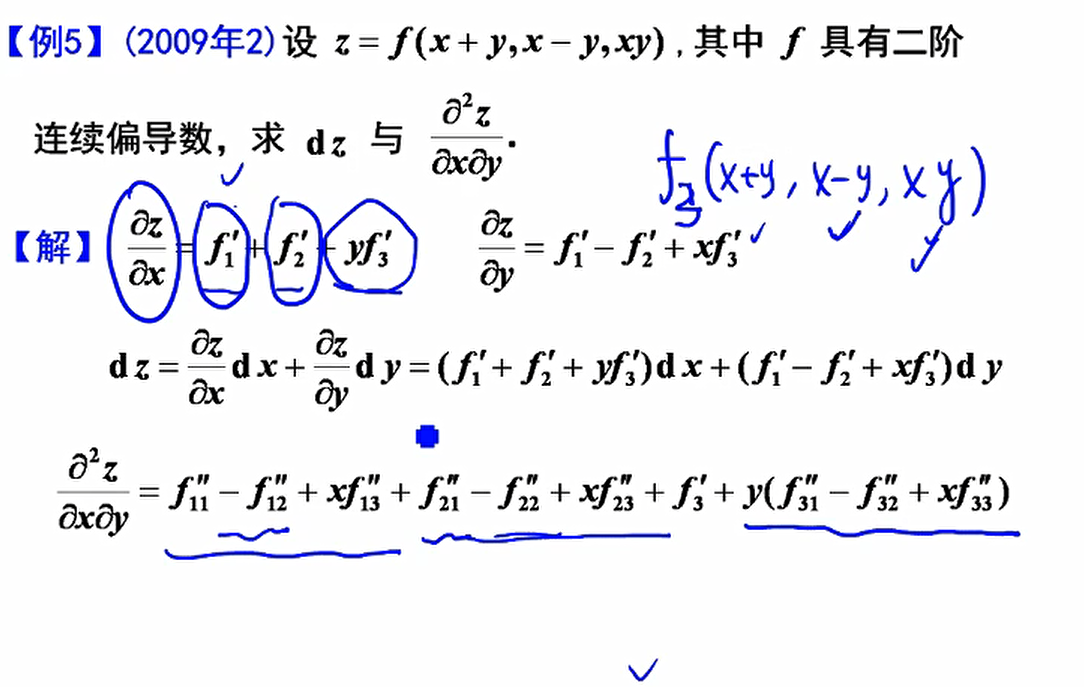 【例5】(2009年2)设 z = f(x + y, x − y, xy) , 其中 f 具有二阶
连续偏导数，求 dz 与 ∂²z/∂x∂y.
f₃(x+y, x−y, xy)
【解】 ∂z/∂x = f₁′ + f₂′ + yf₃′ ∂z/∂y = f₁′ − f₂′ + xf₃′
dz = ∂z/∂x dx + ∂z/∂y dy = (f₁′ + f₂′ + yf₃′)dx + (f₁′ − f₂′ + xf₃′)dy
∂²z/∂x∂y = f₁₁″ − f₁₂″ + xf₁₃″ + f₂₁″ − f₂₂″ + xf₂₃″ + f₃′ + y(f₃₁″ − f₃₂″ + xf₃₃″)